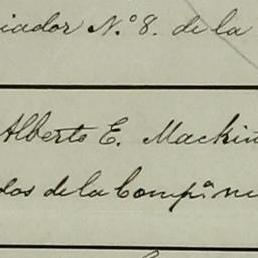 iador N.º 8. de la
Alberto E. Mackin
dos de la Comp.ª